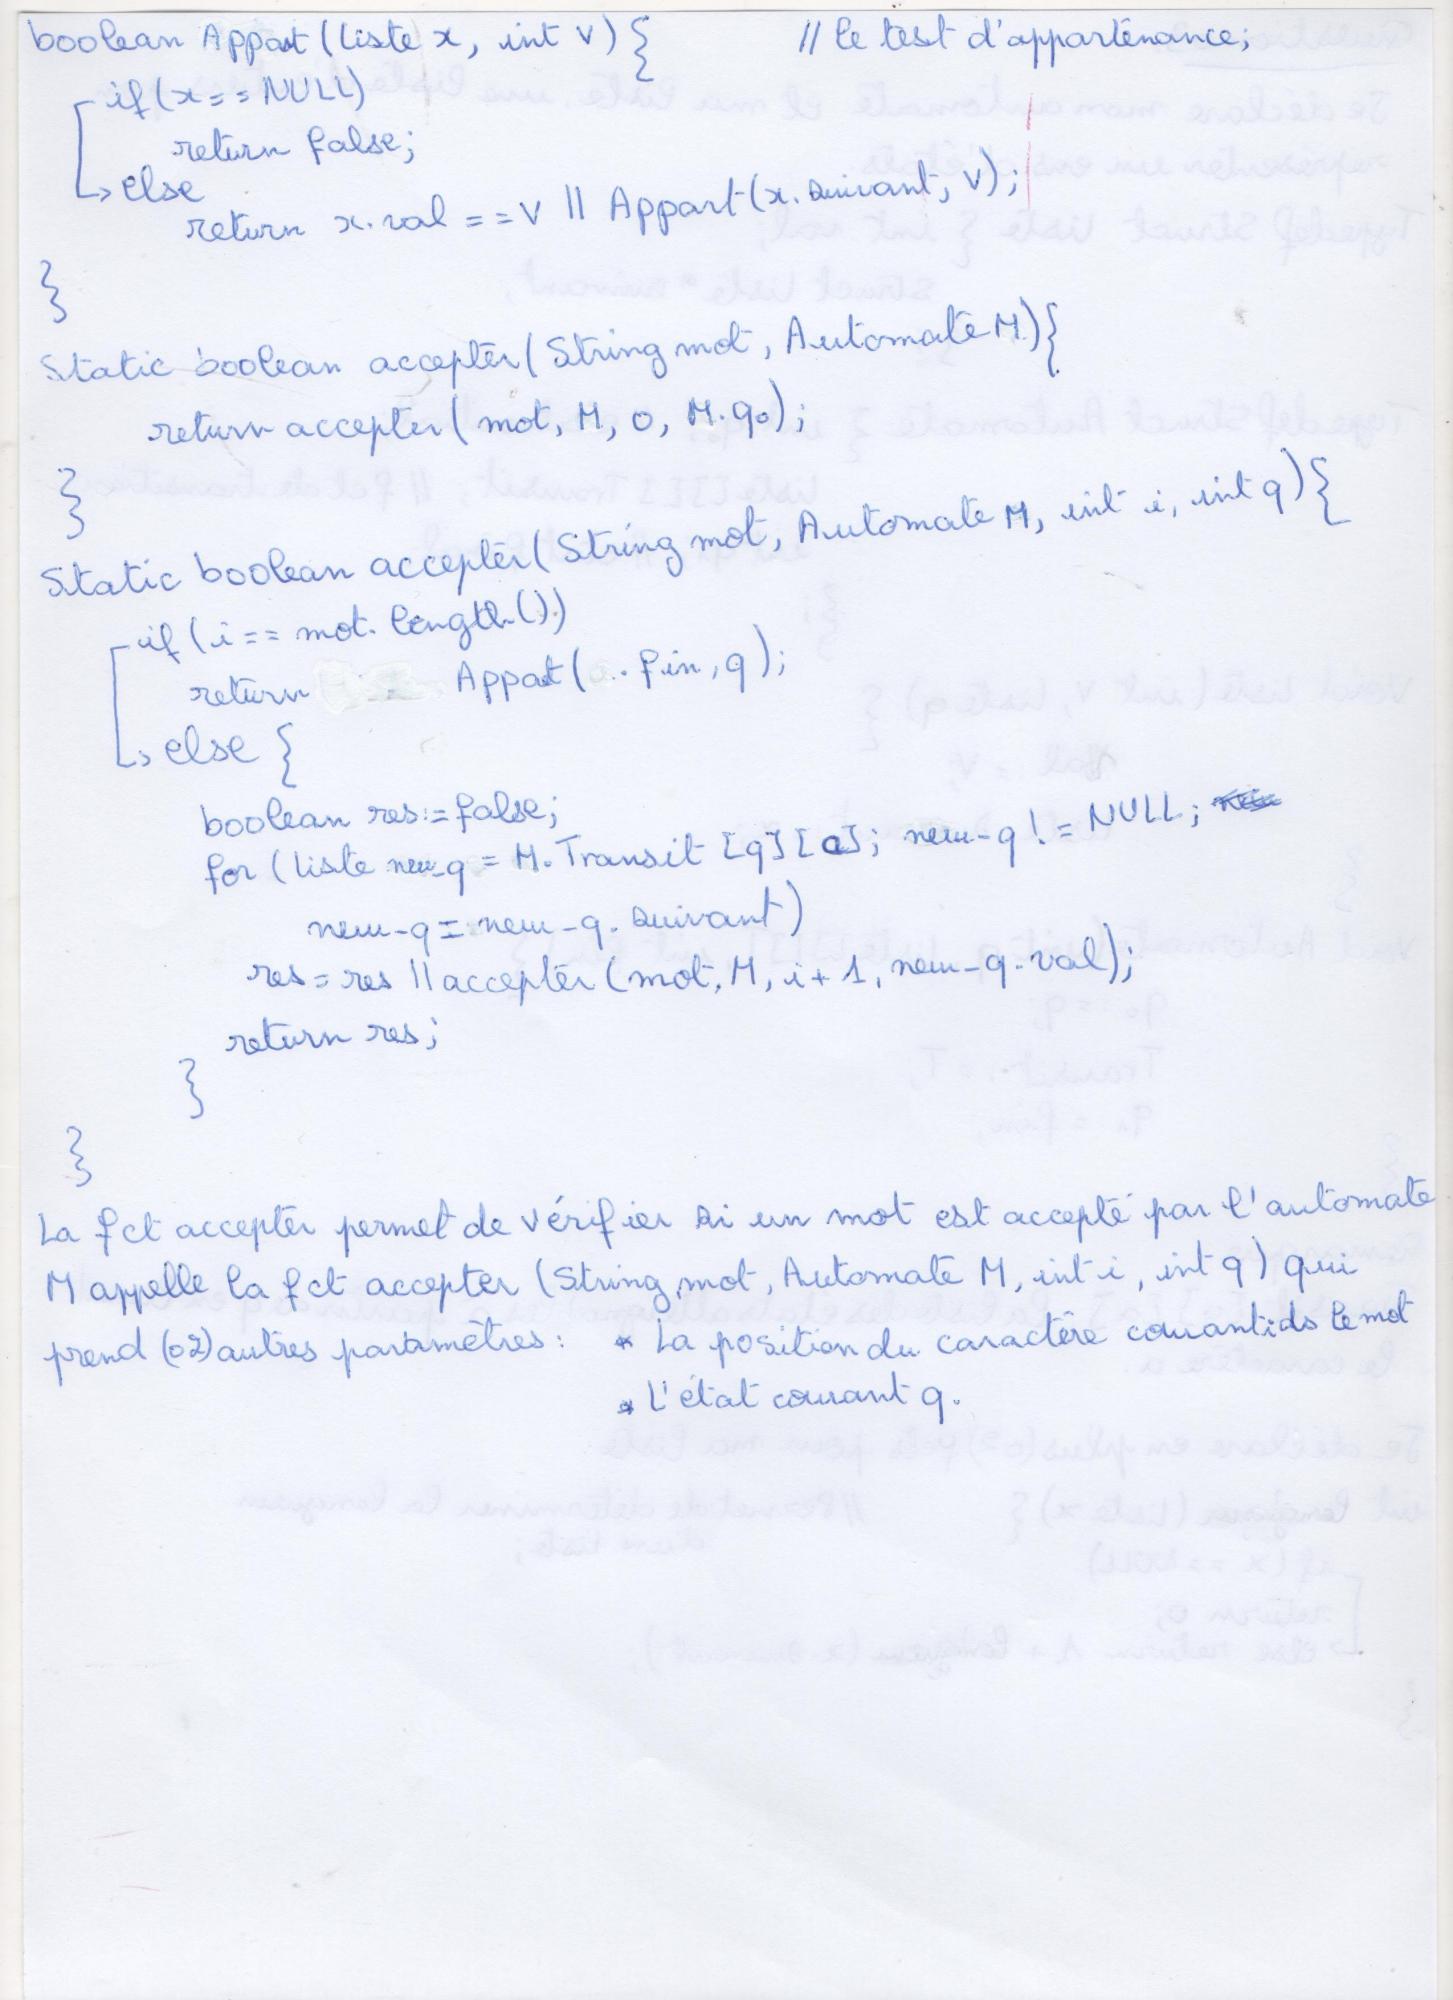 boolean Appart (liste x, int v) { // le test d'appartenance;
if (x == NULL)
return false;
else
return x.val == v || Appart (x.suivant, v);
}
Static boolean accepter (String mot, Automate M) {
return accepter (mot, M, 0, M.q0);
}
Static boolean accepter (String mot, Automate M, int i, int q) {
if (i == mot.length())
return Appart (.. fin, q);
else {
boolean res := false;
for (liste new-q = M.Transit [q] [c]; new-q != NULL;
new-q = new-q.suivant)
res = res || accepter (mot, M, i+1, new-q.val);
return res;
}
}
La fct accepter permet de vérifier si un mot est accepté par l'automate
M appelle la fct accepter (String mot, Automate M, int i, int q) qui
prend (02) autres paramètres : * La position du caractère courant i ds le mot
* L'état courant q.